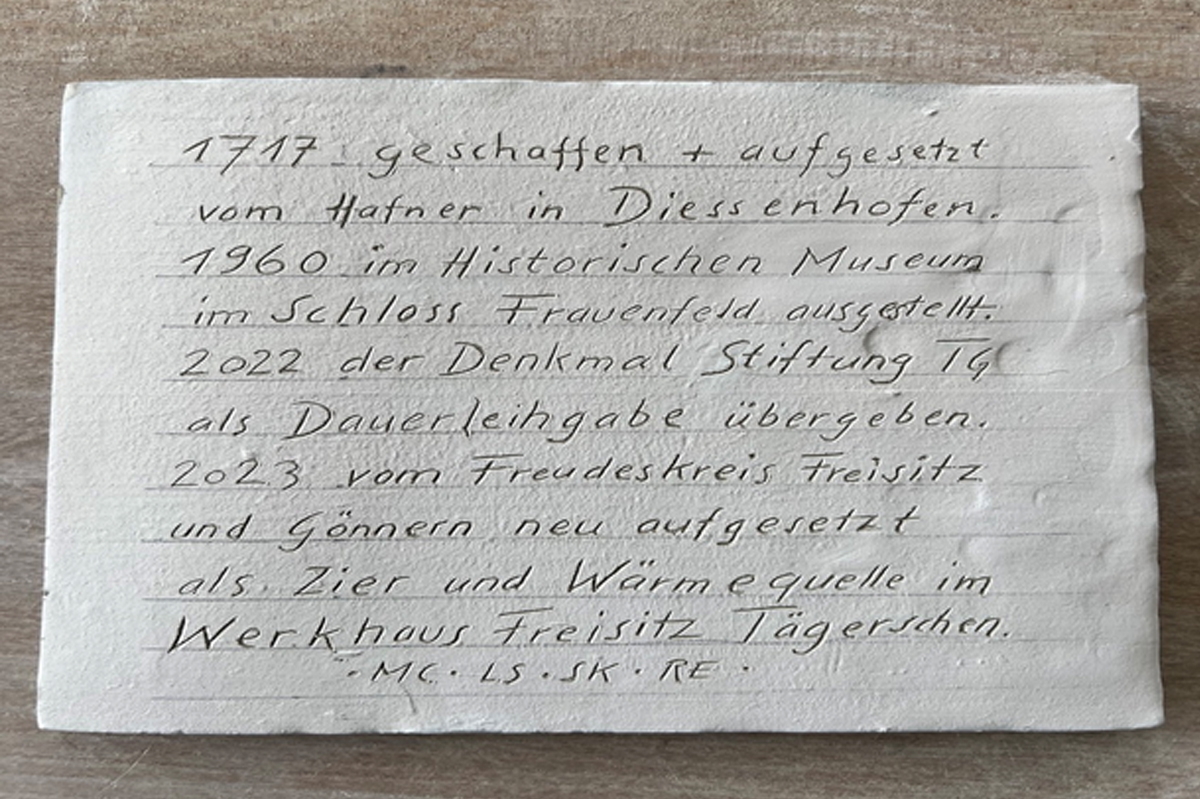 1717 geschaffen + aufgesetzt
vom Hafner in Diessenhofen.
1960 im Historischen Museum
im Schloss Frauenfeld ausgestellt.
2022 der Denkmal Stiftung TG
als Dauerleihgabe übergeben.
2023 vom Freudeskreis Freisitz
und Gönnern neu aufgesetzt
als Zier und Wärmequelle im
Werkhaus Freisitz Tägerschen.
· MC · LS · SK · RE ·